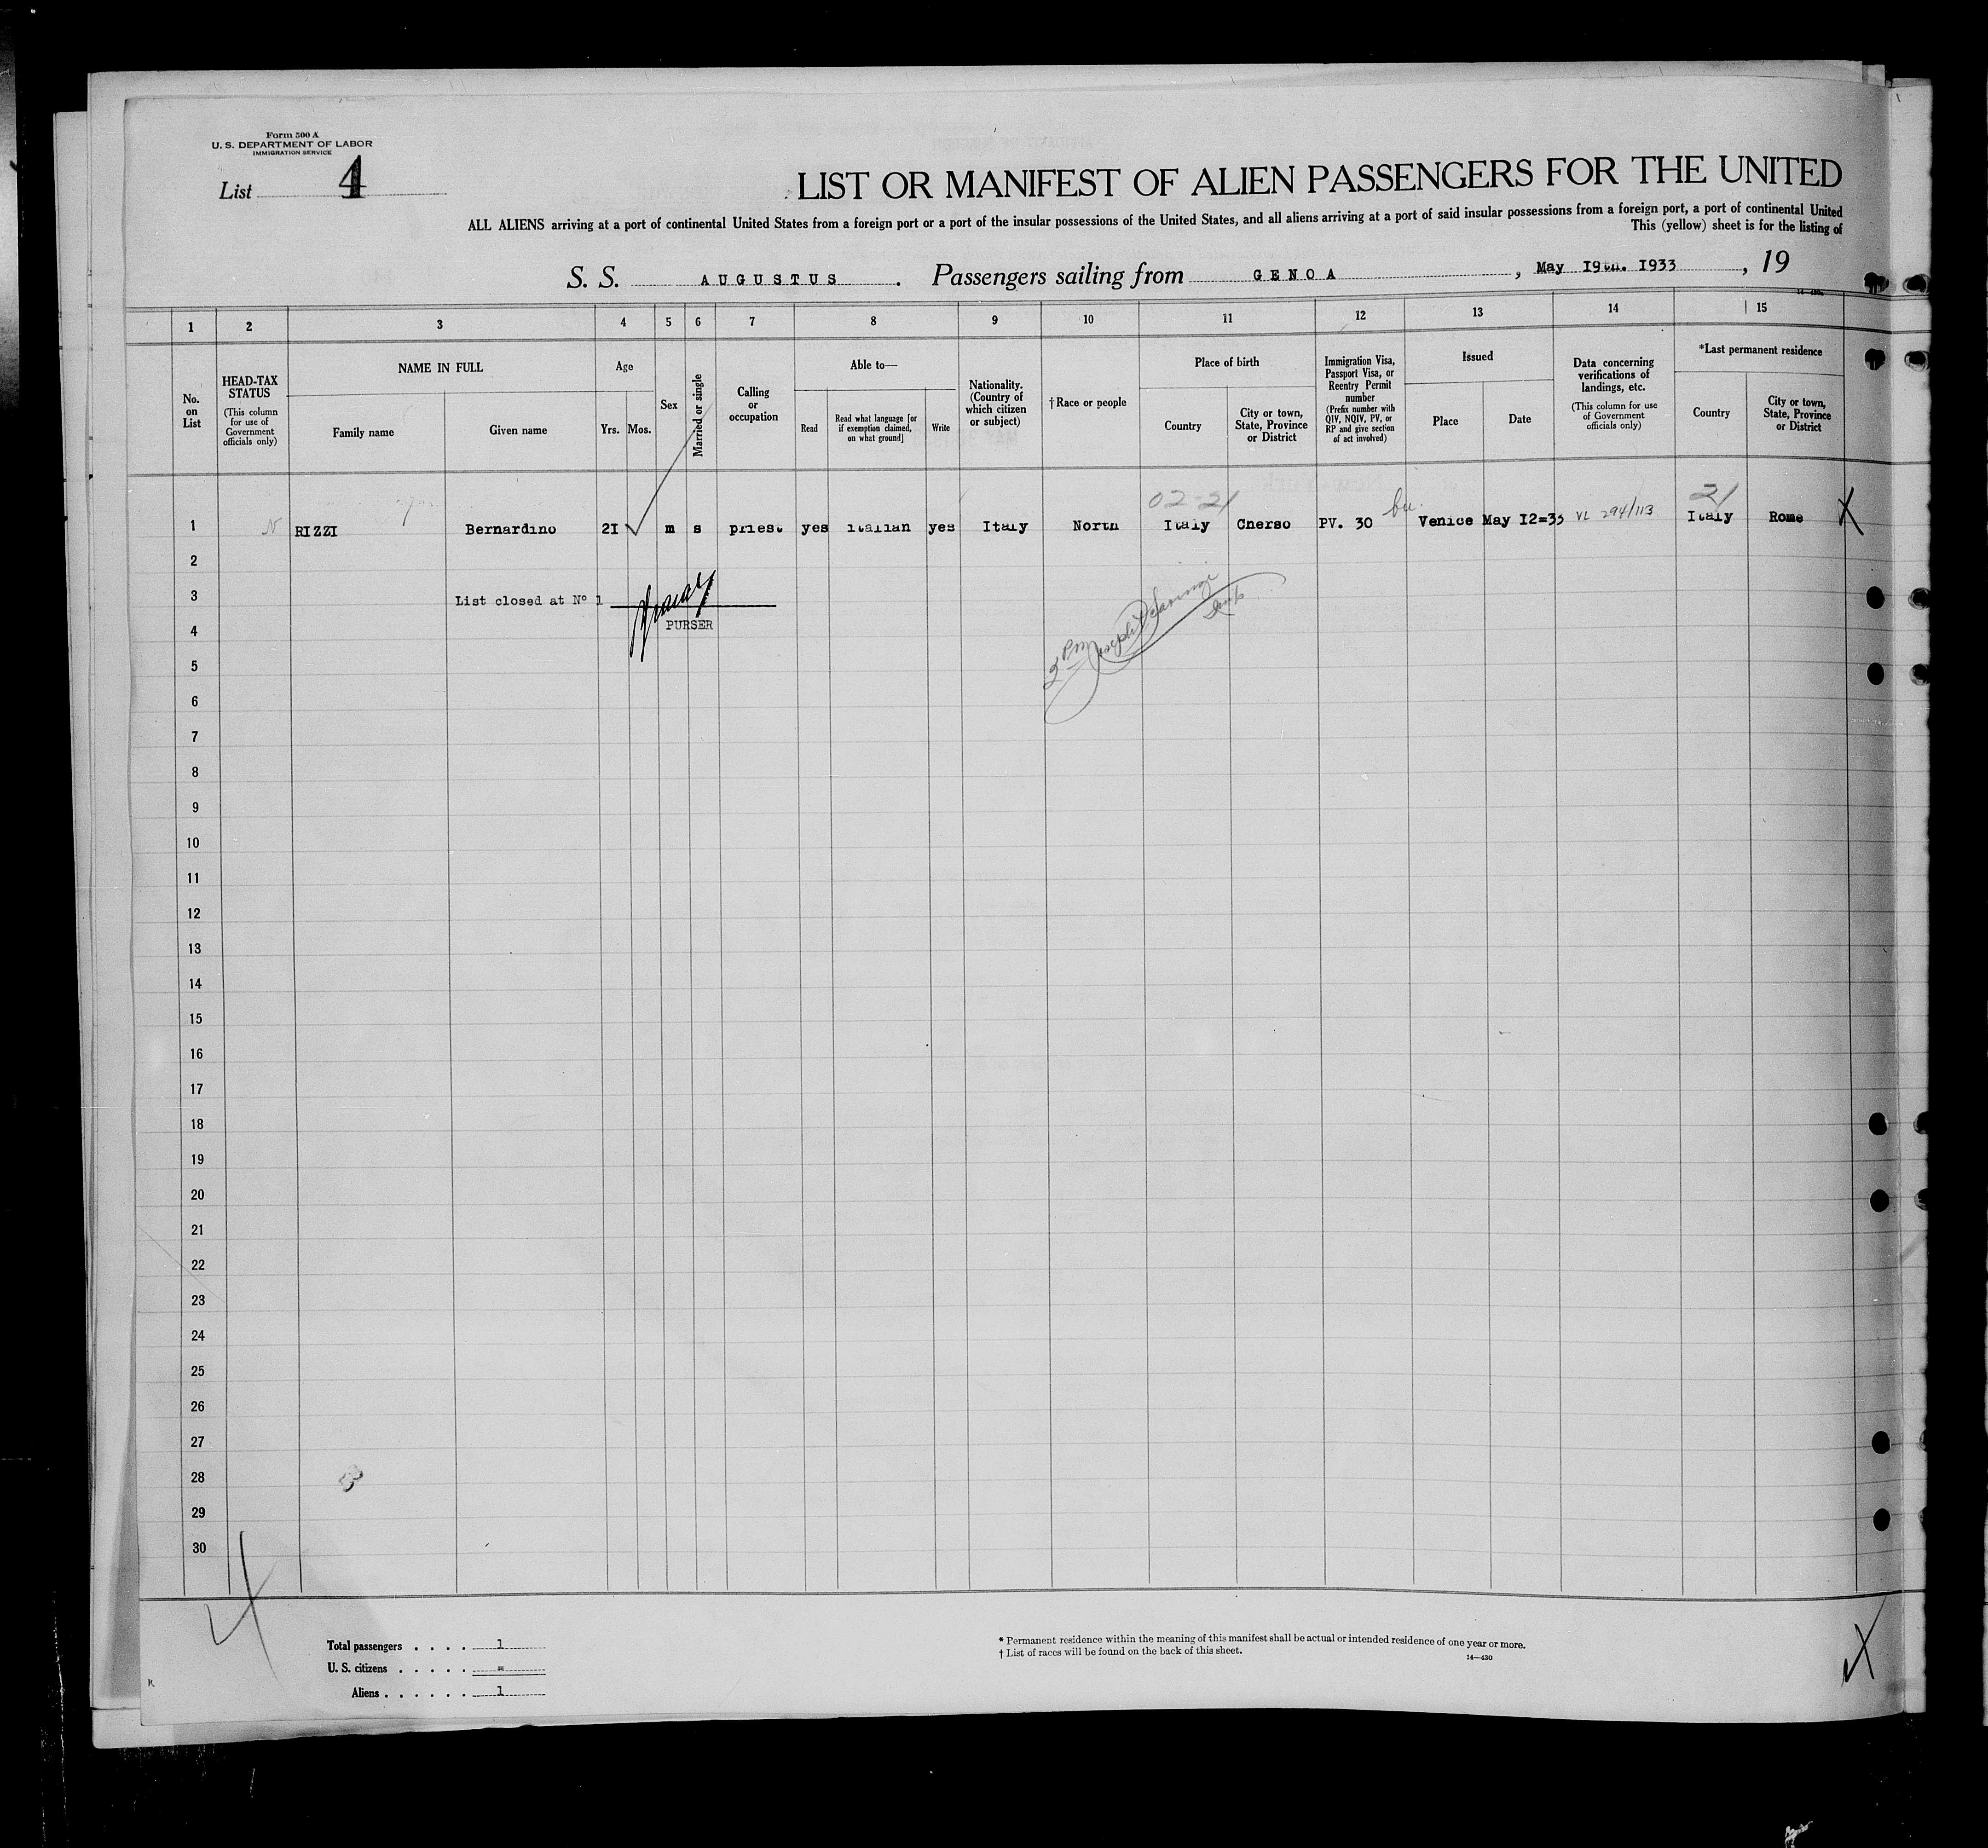 Form 500 A
U. S. DEPARTMENT OF LABOR
IMMIGRATION SERVICE
List 4
LIST OR MANIFEST OF ALIEN PASSENGERS FOR THE UNITED
ALL ALIENS arriving at a port of continental United States from a foreign port or a port of the insular possessions of the United States, and all aliens arriving at a port of said insular possessions from a foreign port, a port of continental United
This (yellow) sheet is for the listing of
S. S. AUGUSTUS . Passengers sailing from GENOA , May I9th. I933 , 19
1 2 3 4 5 6 7 8 9 10 11 12 13 14 15
No. on List
HEAD-TAX STATUS
(This column for use of Government officials only)
NAME IN FULL
Family name
Given name
Age
Yrs. Mos.
Sex
Married or single
Calling or occupation
Able to—
Read
Read what language [or if exemption claimed, on what ground]
Write
Nationality. (Country of which citizen or subject)
†Race or people
Place of birth
Country
City or town, State, Province or District
Immigration Visa, Passport Visa, or Reentry Permit number
(Prefix number with QIV, NQIV, PV, or RP and give section of act involved)
Issued
Place
Date
Data concerning verifications of landings, etc.
(This column for use of Government officials only)
*Last permanent residence
Country
City or town, State, Province or District
02-21 21
1 N RIZZI Bernardino 2I m s priest yes italian yes Italy North Italy Cherso PV. 30 Venice May I2=33 VL 294/113 Italy Rome X
2
3 List closed at Nº 1
PURSER
4
5
6
7
8
9
10
11
12
13
14
15
16
17
18
19
20
21
22
23
24
25
26
27
28
29
30
Total passengers . . . . 1
U. S. citizens . . . . . =
Aliens . . . . . . 1
* Permanent residence within the meaning of this manifest shall be actual or intended residence of one year or more.
† List of races will be found on the back of this sheet.
14—430